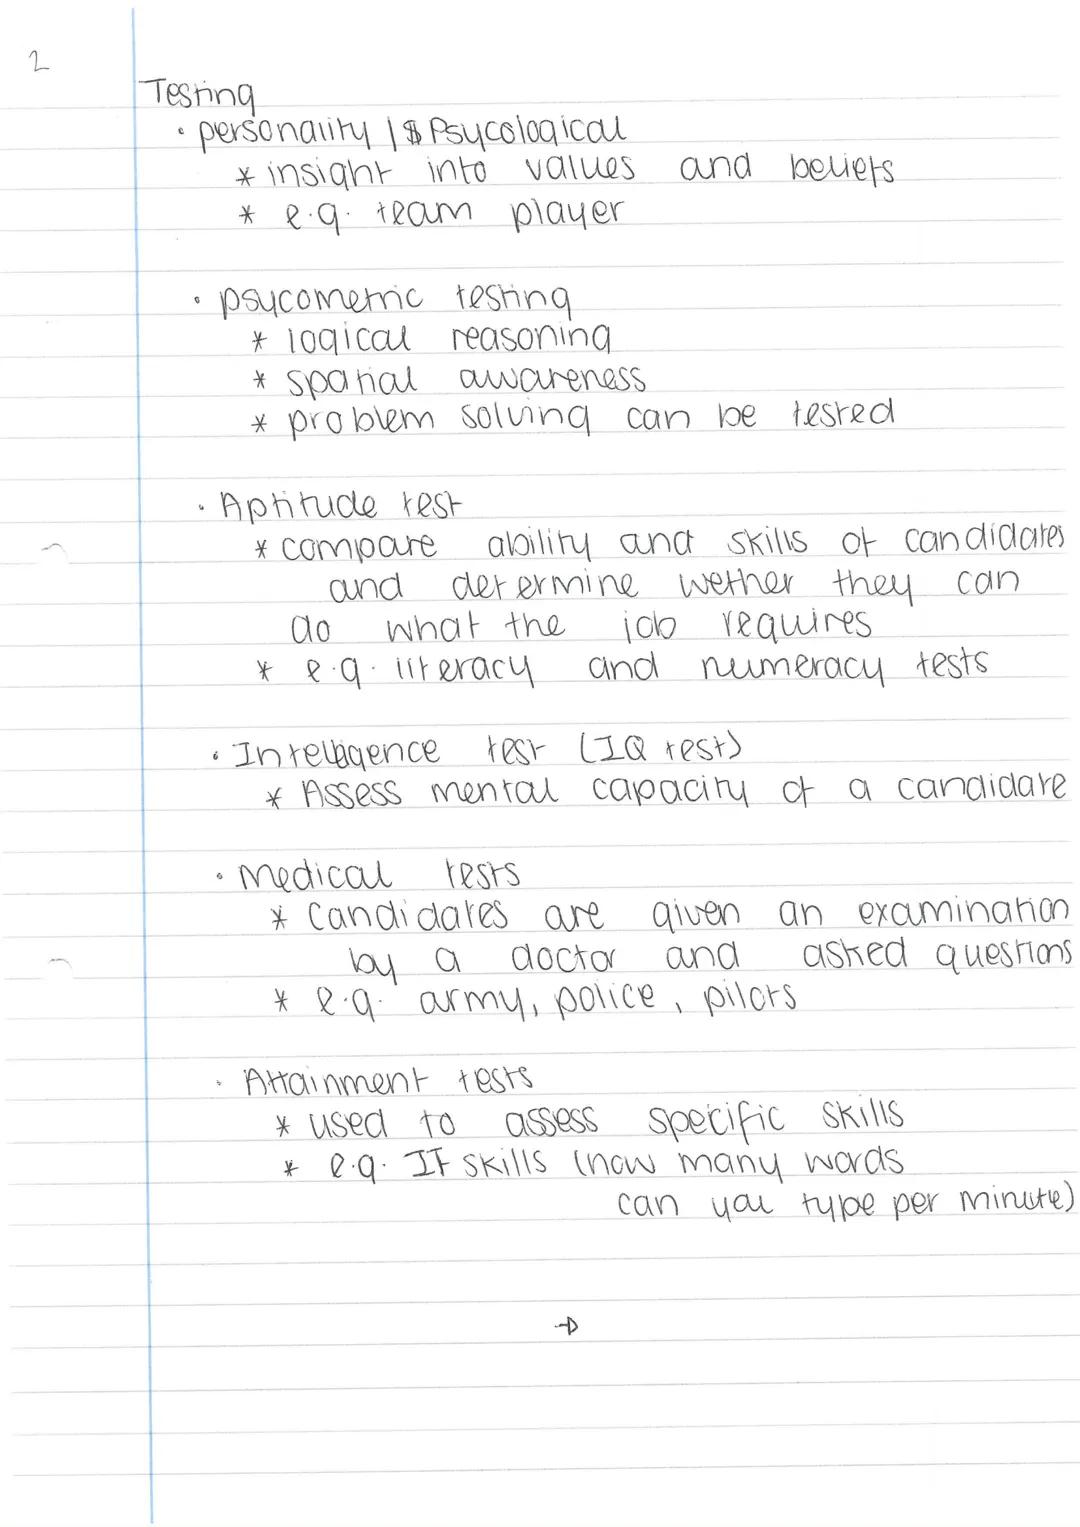 2
Testing
· personality / Psycological
* insight into values and beliefs
* e.g. team player
· psycometric testing
* logical reasoning
* spatial awareness
* problem solving can be tested
· Aptitude test
* compare ability and skills of candidates
and determine wether they can
do what the job requires
* e.g. literacy and numeracy tests
· Intelligence test (IQ test)
* Assess mental capacity of a candidate
· Medical tests
* Candidates are given an examination
by a doctor and asked questions
* e.g. army, police, pilots
· Attainment tests
* used to assess specific skills
* e.g. IT skills (how many words
can you type per minute)
→